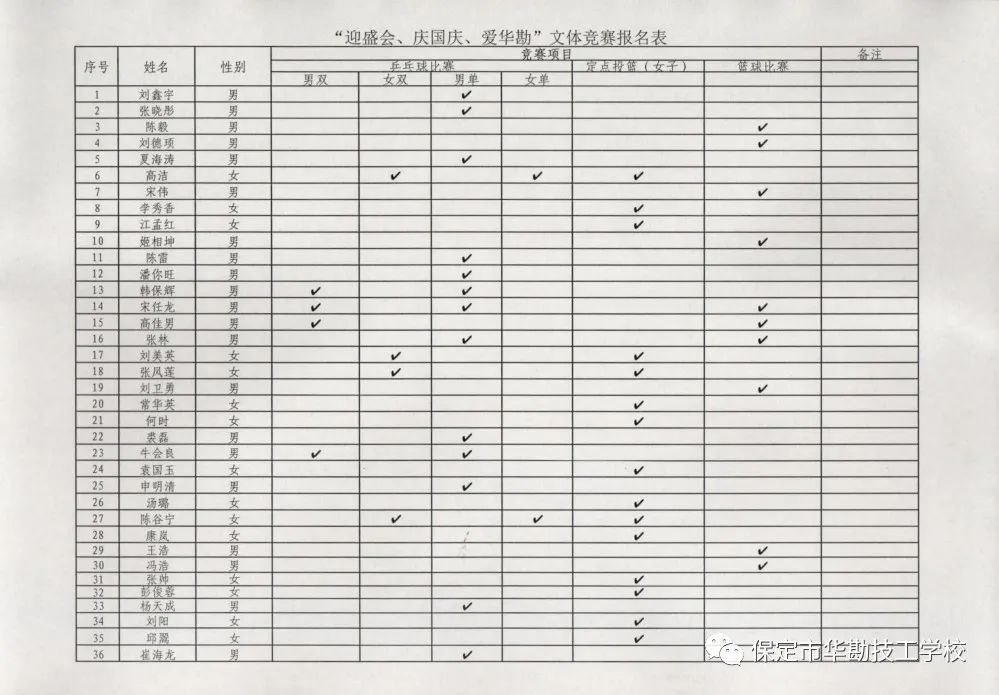 “迎盛会、庆国庆、爱华勘”文体竞赛报名表
序号 姓名 性别 竞赛项目 备注
乒乓球比赛 定点投篮（女子） 篮球比赛
男双 女双 男单 女单
1 刘鑫宇 男 ✓
2 张晓彤 男 ✓
3 陈毅 男 ✓
4 刘德顼 男 ✓
5 夏海涛 男 ✓
6 高洁 女 ✓ ✓ ✓
7 宋伟 男 ✓
8 李秀香 女 ✓
9 江孟红 女 ✓
10 姬相坤 男 ✓
11 陈雷 男 ✓
12 潘你旺 男 ✓
13 韩保辉 男 ✓ ✓
14 宋任龙 男 ✓ ✓ ✓
15 高佳男 男 ✓ ✓
16 张林 男 ✓ ✓
17 刘美英 女 ✓ ✓
18 张凤莲 女 ✓ ✓
19 刘卫勇 男 ✓
20 常华英 女 ✓
21 何时 女 ✓
22 裘磊 男 ✓
23 牛会良 男 ✓ ✓
24 袁国玉 女 ✓
25 申明清 男 ✓
26 汤璐 女 ✓
27 陈谷宁 女 ✓ ✓ ✓
28 康岚 女 ✓
29 王浩 男 ✓
30 冯浩 男 ✓
31 张帅 女 ✓
32 彭俊蓉 女 ✓
33 杨天成 男 ✓
34 刘阳 女 ✓
35 邱 女 ✓
36 崔海龙 男 ✓
保定市华勘技工学校